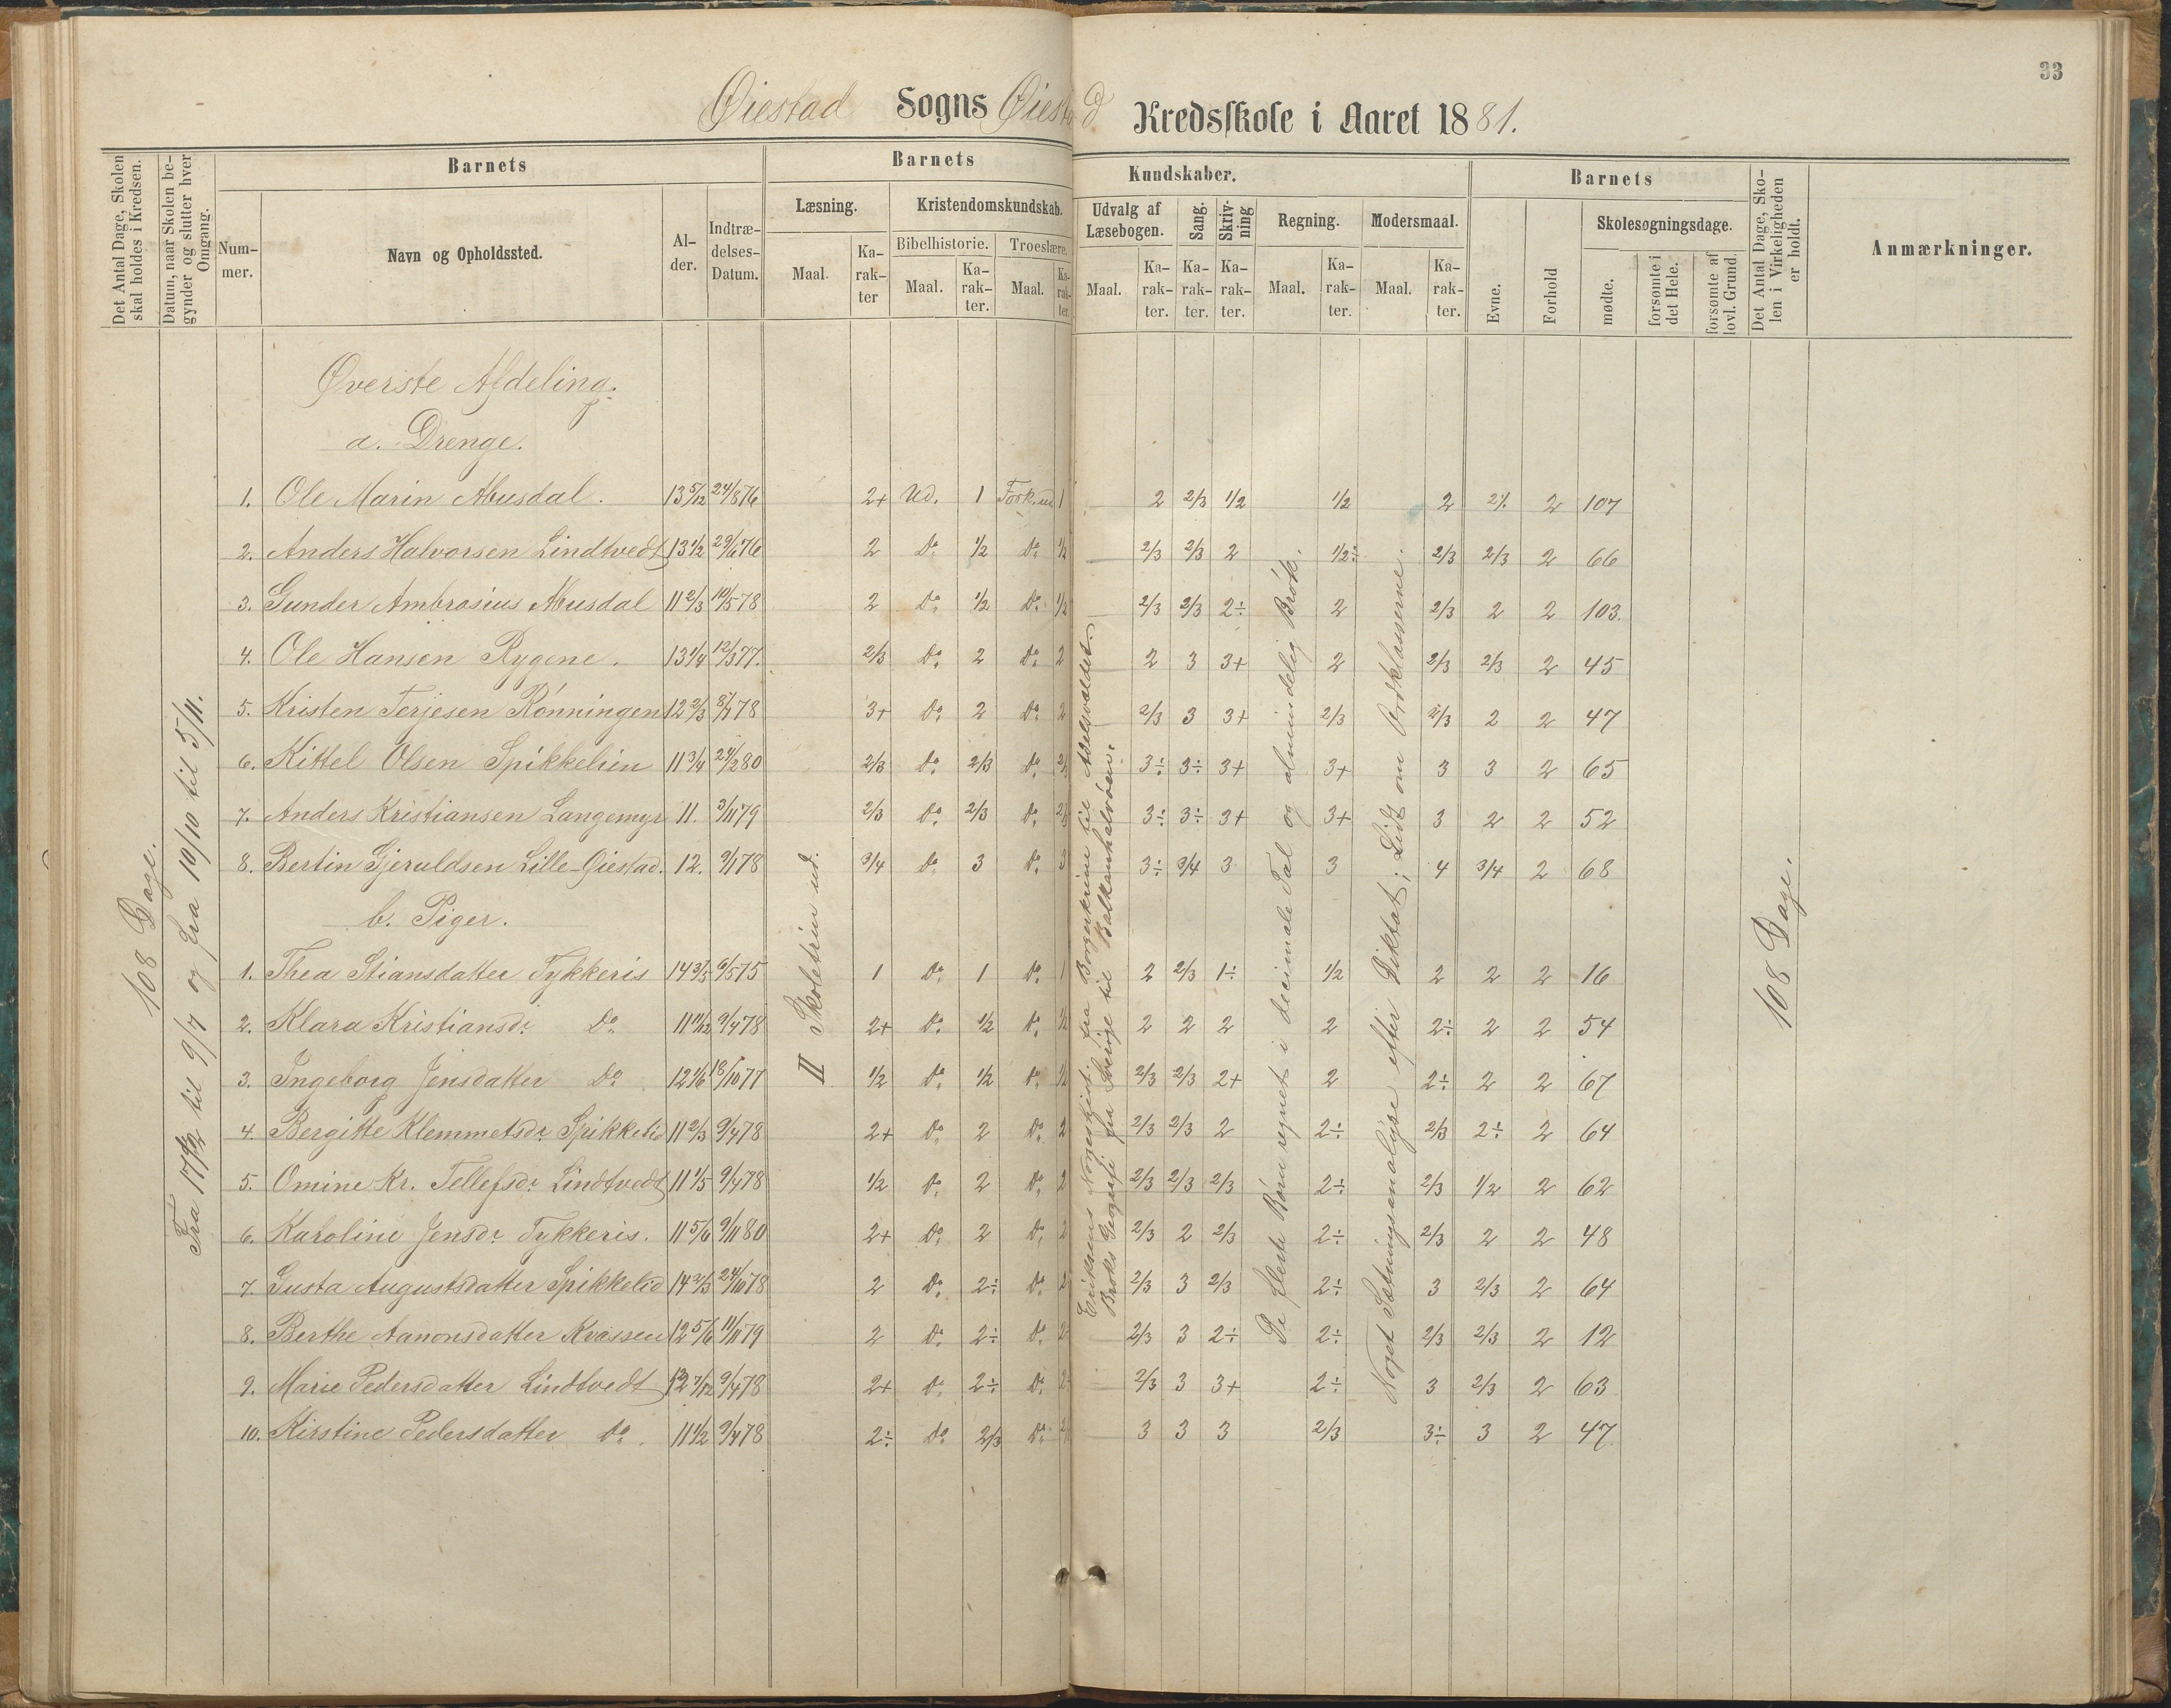 33
Øiestad Sogns Øiestad Kredsskole i Aaret 1881.
Det Antal Dage, Skolen skal holdes i Kredsen.
Datum, naar Skolen begynder og slutter hver Omgang.
Barnets
Nummer.
Navn og Opholdssted.
Alder.
Indtrædelses-Datum.
Barnets Kundskaber.
Læsning.
Maal.
Karakter
Kristendomskundskab.
Bibelhistorie.
Maal.
Karakter.
Troeslære.
Maal.
Karakter.
Udvalg af Læsebogen.
Maal.
Karakter.
Sang.
Karakter.
Skrivning
Karakter.
Regning.
Maal.
Karakter.
Modersmaal.
Maal.
Karakter.
Barnets
Evne.
Forhold
Skolesøgningsdage.
mødte.
forsømte i det Hele.
forsømte af lovl. Grund.
Det Antal Dage, Skolen i Virkeligheden er holdt.
Anmærkninger.
108 Dage.
til 9/7 og fra 10/10 til 5/11.
Øverste Afdeling.
a. Drenge.
1. Ole Marin Abusdal. 13 5/12 24/8 76 2+ Ud. 1 1 2 2/3 1/2 1/2 2 2 107
2. Anders Halvorsen Lindtvedt 13 1/2 29/6 76 2 Do. 1/2 Do. 1/2 2/3 2/3 2 1/2÷ 2/3 2/3 2 66
3. Gunder Ambrosius Abusdal 11 2/3 10/5 78 2 Do. 1/2 Do. 1/2 2/3 2/3 2÷ 2 2/3 2 2 103.
4. Ole Hansen Rygene. 13 1/4 12/3 77. 2/3 Do. 2 Do. 2 2 3 3+ 2 2/3 2/3 2 45
5. Kristen Terjesen Rönningen 12 2/3 78 3+ Do. 2 Do. 2 2/3 3 3+ 2/3 2/3 2 2 47
6. Kittel Olsen Spikkelien 11 3/4 24/2 80 2/3 Do. 2/3 Do. 2/3 3÷ 3÷ 3+ 3+ 3 3 2 65
7. Anders Kristiansen Langemyr 11. 3/11 79 2/3 Do. 2/3 Do. 2/3 3÷ 3÷ 3+ 3+ 3 2 2 52
8. Bertin Gjeruldsen Lille-Øiestad. 12. 9/1 78 3/4 Do. 3 Do. 3 3÷ 3/4 3 3 4 3/4 2 68
b. Piger.
1. Thea Stiansdatter Tykkeris 14 6/5 75 1 Do. 1 Do. 1 2 2/3 1÷ 1/2 2 2 2 16
2. Klara Kristiansdr. Do. 11 11/12 9/4 78 2+ Do. 1/2 Do. 1/2 2 2 2 2 2÷ 2 2 54
3. Ingeborg Jensdatter Do. 12 1/6 18/10 77 1/2 Do. 1/2 Do. 1/2 2/3 2/3 2+ 2 2÷ 2 2 67
4. Bergitte Klemmetsdr. Spikkelid 11 2/3 9/4 78 2+ Do. 2 Do. 2 2/3 2/3 2 2÷ 2/3 2÷ 2 64
5. Omine Kr. Tellefsdr. Lindtvedt 11 1/5 9/4 78 1/2 Do. 2 Do. 2 2/3 2/3 2/3 2÷ 2/3 1/2 2 62
6. Karoline Jensdr. Tykkeris. 11 5/6 9/11 80 2+ Do. 2 Do. 2 2/3 2 2/3 2÷ 2/3 2 2 48
7. Gusta Augustsdatter Spikkelid 14 2/3 24/10 78 2 Do. 2÷ Do. 2/3 3 2/3 2÷ 3 2/3 2 64
8. Berthe Aanonsdatter Kvassen 12 5/6 11/11 79 2 Do. 2÷ Do. 2/3 3 2÷ 2÷ 2/3 2/3 2 12
9. Marie Pedersdatter Lindtvedt 12 7/12 9/4 78 2+ Do. 2÷ Do. 2/3 3 3+ 2÷ 3 2/3 2 63
10. Kirstine Pedersdatter Do. 11 1/2 9/4 78 2÷ Do. 2/3 Do. 3 3 3 2/3 3÷ 3 2 47
II Skoletrin ud.
Eriksens Norgeshist. fra Borgerkrien til Adelsvældet.
Broks Geografi fra Sverige til Balkanhalvöen.
De fleste Börn regnet i decimale Tal og almindelig Brök.
Noget Sætningsanalyse efter Diktat; Lidt om Ordklasserne.
108 Dage.